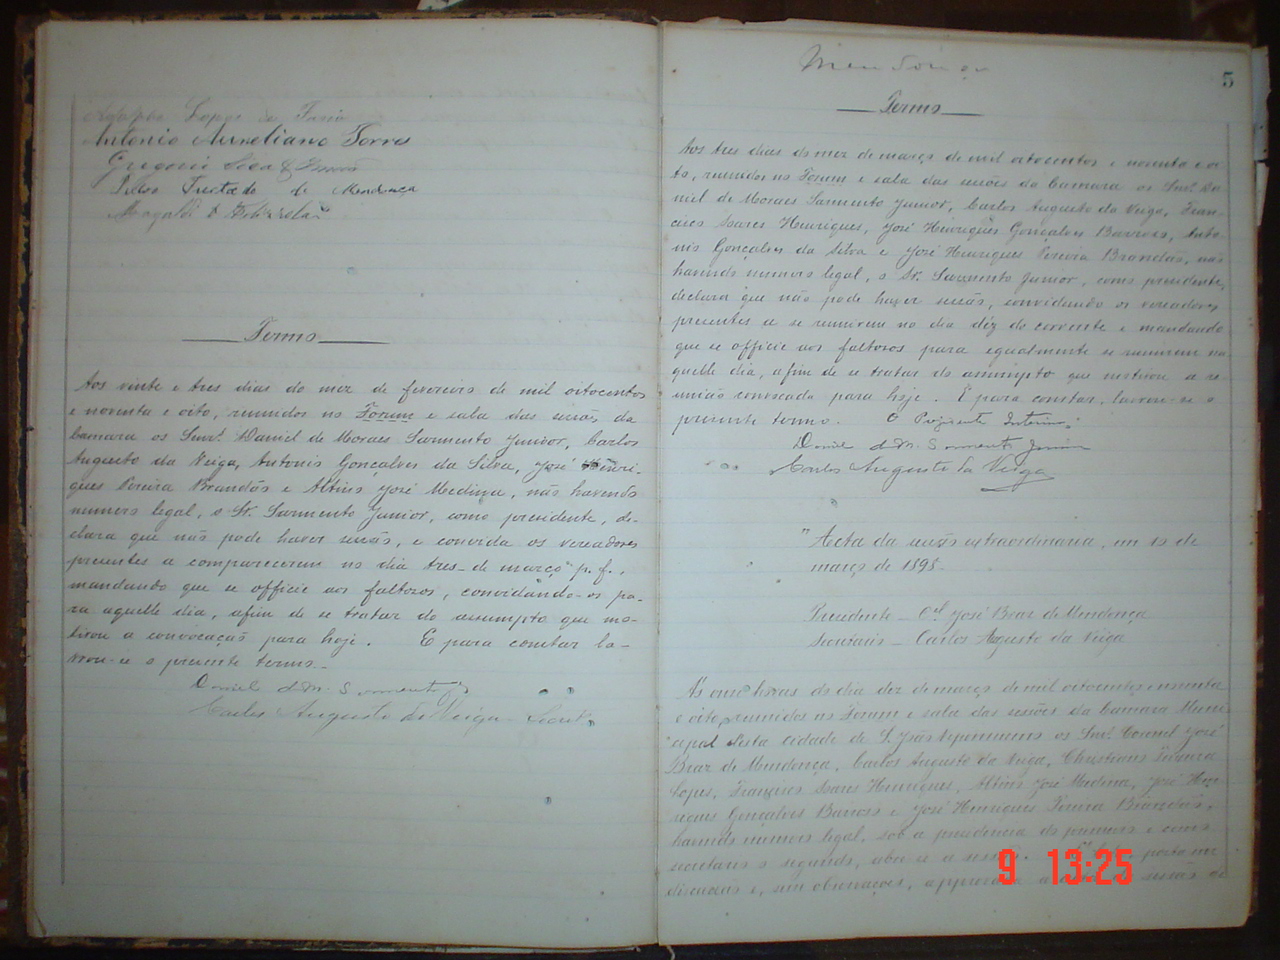 Adolpho Lopes de Faria
Antonio Aureliano Torres
Furtado de Mendonça
Termo
Aos vinte e tres dias do mez de fevereiro de mil oitocentos
e noventa e oito, reunidos no Forum e sala das sessões da
Camara os Snrs. Daniel de Moraes Sarmento Junior, Carlos
Augusto da Veiga, Antonio Gonçalves da Silva, José Henri-
ques Pereira Brandão e Altino José Medina, não havendo
numero legal, o Sr. Sarmento Junior, como presidente, de-
clara que não pode haver sessão, e convida os vereadores
presentes a comparecerem no dia tres de março p. f.,
mandando que se officie aos faltosos, convidando-os pa-
ra aquelle dia, afim de se tratar do assumpto que mo-
tivou a convocação para hoje. E para constar la-
vrou-se o presente termo.
Daniel de M. Sarmento Jr
Carlos Augusto da Veiga Secret
5
Termo
Aos tres dias do mez de março de mil oitocentos e noventa e oi-
to, reunidos no Forum e sala das sessões da Camara os Snrs. Da-
niel de Moraes Sarmento Junior, Carlos Augusto da Veiga, Fran-
cisco Soares Henriques, José Henriques Gonçalves Barroso, Anto-
nio Gonçalves da Silva e José Henriques Pereira Brandão, não
havendo numero legal, o Sr. Sarmento Junior, como presidente,
declara que não pode haver sessão, convidando os vereadores
presentes a se reunirem no dia déz do corrente e mandando
que se officie aos faltosos para egualmente se reunirem na
quelle dia, afim de se tratar do assumpto que motivou a re-
união convocada para hoje. E para constar, lavrou-se o
presente termo. O Prezidente Interino,
Daniel de M. Sarmento Junior
Carlos Augusto da Veiga
"Acta da sessão extraordinaria, em 10 de
março de 1898-
Presidente - Cel José Braz de Mendonça
Secretario - Carlos Augusto da Veiga
Ás onze horas do dia dez de março de mil oitocentos e noventa
e oito, reunidos no Forum e sala das sessões da Camara Muni
cipal desta cidade de S. João Nepomuceno os Snrs. Coronel José
Braz de Mendonça, Carlos Augusto da Veiga, Christiano
Lopes, Francisco Soares Henriques, Altino José Medina, José Hen
riques Gonçalves Barroso e José Henriques Pereira Brandão,
havendo numero legal, sob a presidencia do primeiro e como
secretario o segundo, abre-se a sessão. posta em
discussão e, sem observações, approvada a sessão de
9 13:25